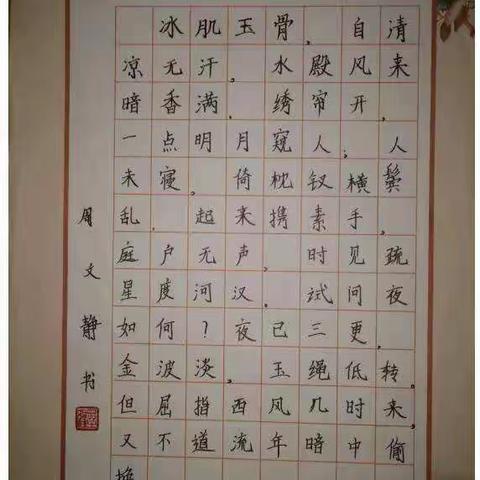 冰肌玉骨，自清
凉无汗。水殿风来
暗香满。绣帘开，
一点明月窥人；人
未寝。倚枕钗横鬓
乱。起来携素手，
庭户无声，时见疏
星度河汉。试问夜
如何？夜已三更，
金波淡，玉绳低转。
但屈指西风几时来，
又不道流年暗中偷
换
周文静书